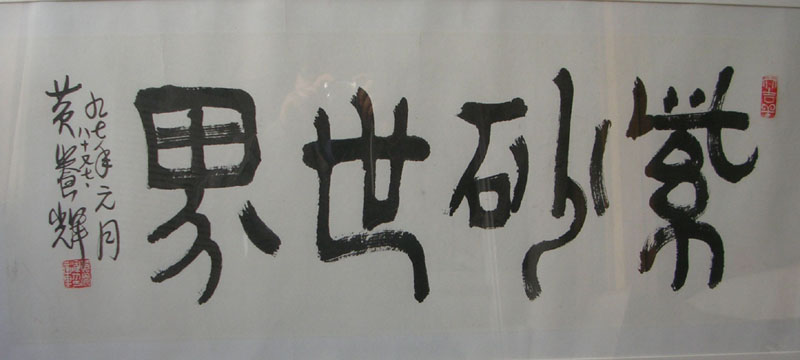 紫砂世界
九七年元月
八十又七
黄養輝